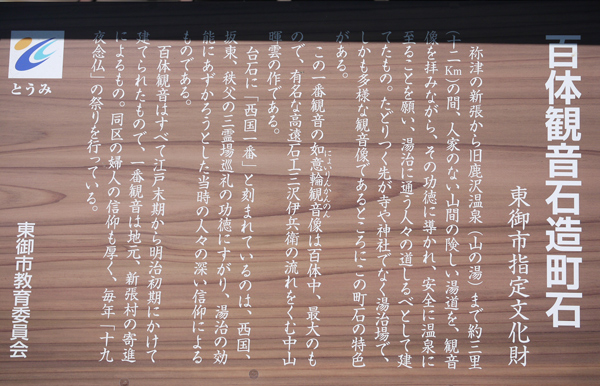 百体観音石造町石
東御市指定文化財
祢津の新張から旧鹿沢温泉（山の湯）まで約三里
（十二Km）の間、人家のない山間の険しい湯道を、観音
像を拝みながら、その功徳に導かれ、安全に温泉に
至ることを願い、湯治に通う人々の道しるべとして建
てたもの。たどりつく先が寺や神社でなく湯治場で、
しかも多様な観音像であるところにこの町石の特色
がある。
この一番観音の如意輪観音像は百体中、最大のも
にょいりんかんのん
ので、有名な高遠石工三沢伊兵衛の流れをくむ中山
暉雲の作である。
台石に「西国一番」と刻まれているのは、西国、
坂東、秩父の三霊場巡礼の功徳にすがり、湯治の効
能にあずかろうとした当時の人々の深い信仰による
ものである。
百体観音はすべて江戸末期から明治初期にかけて
建てられたもので、一番観音は地元、新張村の寄進
によるもの。同区の婦人の信仰も厚く、毎年「十九
夜念仏」の祭りを行っている。
東御市教育委員会
とうみ